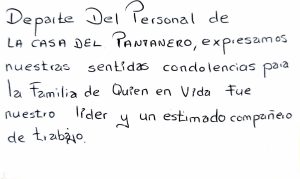 Departe Del Personal de
LA CASA DEL PANTANERO, expresamos
nuestras sentidas condolencias para
la Familia de Quien en Vida Fue
nuestro lider y un estimado compañero
de trabajo.